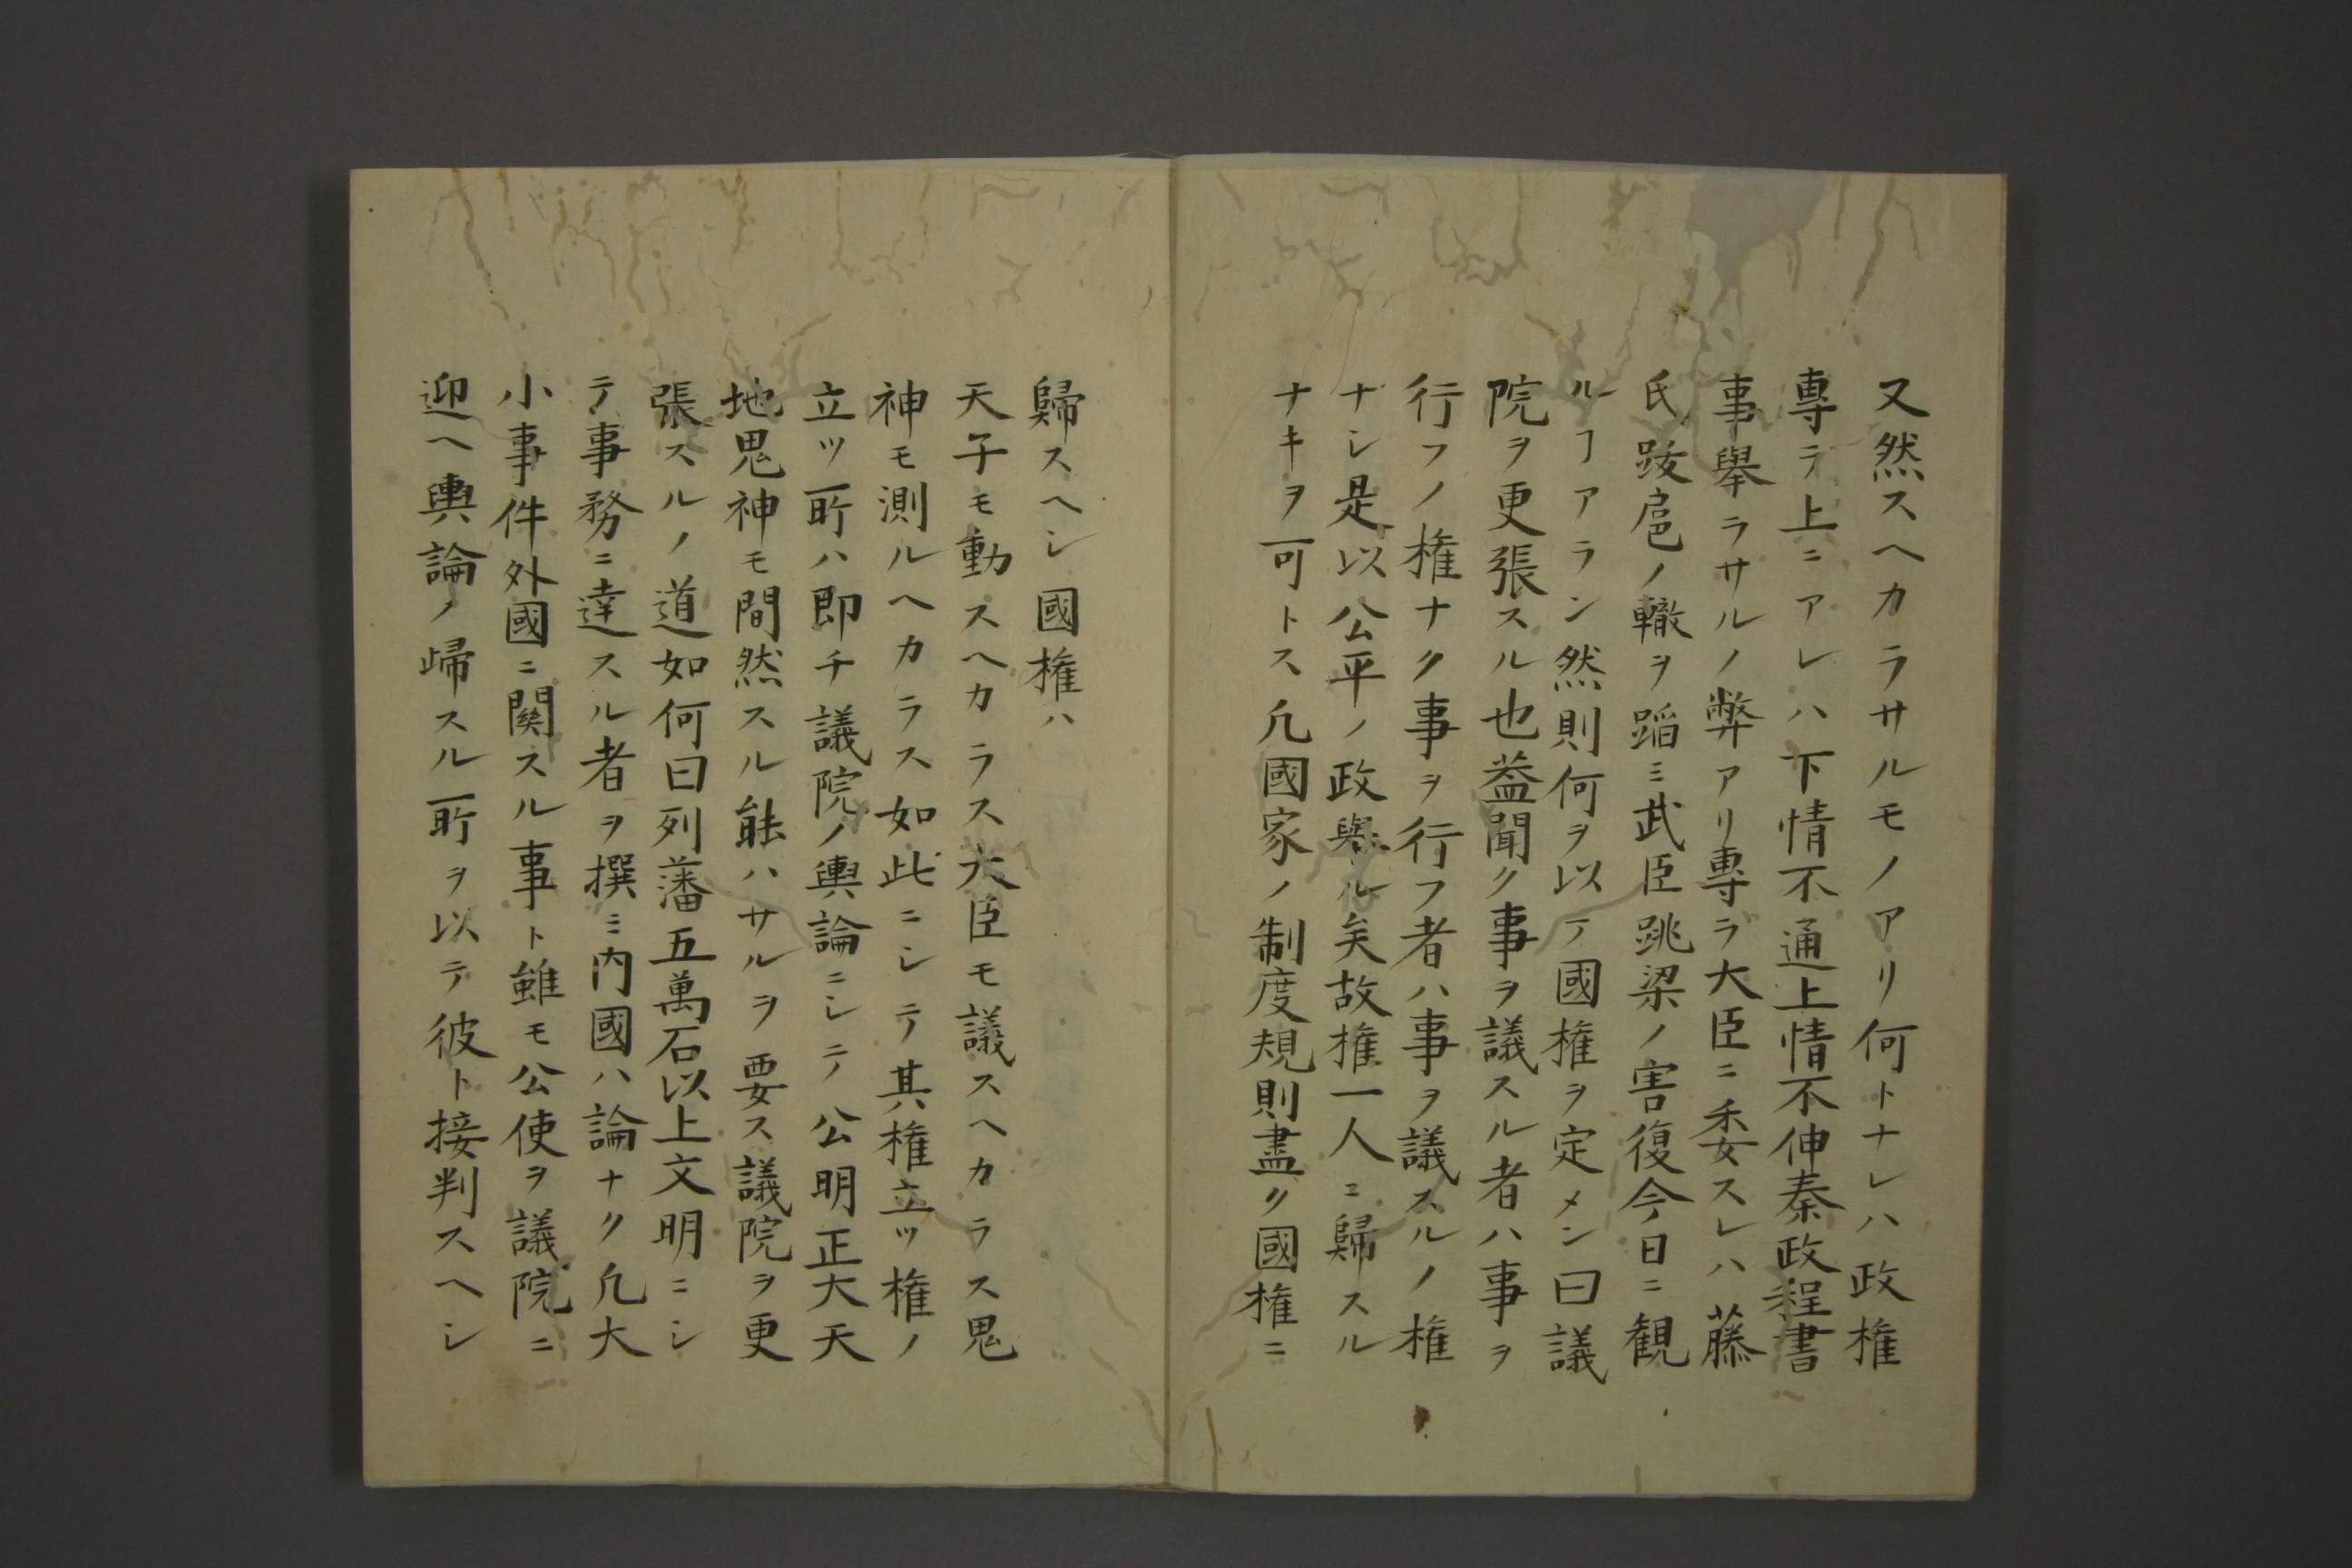 又然スヘカラサルモノアリ何トナレハ政権
専ラ上ニアレハ下情不通上情不伸秦政程書
事舉ラサルノ弊アリ専ラ大臣ニ委スレハ藤
氏跋扈ノ轍ヲ蹈ミ武臣跳梁ノ害復今日ニ観
ルヿアラン然則何ヲ以テ國権ヲ定メン曰議
院ヲ更張スル也葢聞ク事ヲ議スル者ハ事ヲ
行フノ権ナク事ヲ行フ者ハ事ヲ議スルノ権
ナシ是以公平ノ政舉ル矣故権一人ニ歸スル
ナキヲ可トス凡國家ノ制度規則盡ク國権ニ
歸スヘシ國権ハ
天子モ動スヘカラス大臣モ議スヘカラス鬼
神モ測ルヘカラス如此ニシテ其権立ツ権ノ
立ツ所ハ即チ議院ノ輿論ニシテ公明正大天
地鬼神モ間然スル能ハサルヲ要ス議院ヲ更
張スルノ道如何曰列藩五萬石以上文明ニシ
テ事務ニ達スル者ヲ撰ミ内國ハ論ナク凡大
小事件外國ニ関スル事ト雖モ公使ヲ議院ニ
迎ヘ輿論ノ帰スル所ヲ以テ彼ト接判スヘシ